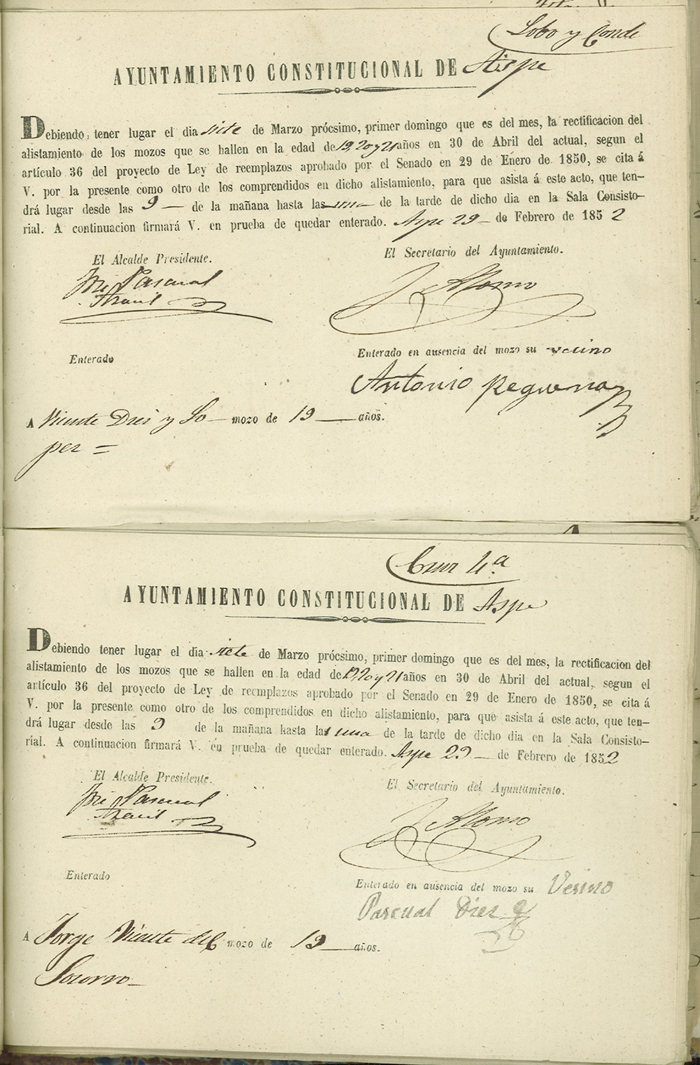 Lobo y Conde
AYUNTAMIENTO CONSTITUCIONAL DE Aspe
Debiendo tener lugar el dia siete de Marzo prócsimo, primer domingo que es del mes, la rectificacion del
alistamiento de los mozos que se hallen en la edad de 19, 20 y 21 años en 30 de Abril del actual, segun el
artículo 36 del proyecto de Ley de reemplazos aprobado por el Senado en 29 de Enero de 1850, se cita á
V. por la presente como otro de los comprendidos en dicho alistamiento, para que asista á este acto, que ten-
drá lugar desde las 9 de la mañana hasta las una de la tarde de dicho dia en la Sala Consisto-
rial. A continuacion firmará V. en prueba de quedar enterado. Aspe 29 de Febrero de 1852
El Alcalde Presidente. El Secretario del Ayuntamiento.
Pascual Alonso
Enterado Enterado en ausencia del mozo su vecino
Antonio Requena
A Vicente Dies y Lo- mozo de 19 años.
per =
Cruz 4a
AYUNTAMIENTO CONSTITUCIONAL DE Aspe
Debiendo tener lugar el dia siete de Marzo prócsimo, primer domingo que es del mes, la rectificacion del
alistamiento de los mozos que se hallen en la edad de 19 20 y 21 años en 30 de Abril del actual, segun el
artículo 36 del proyecto de Ley de reemplazos aprobado por el Senado en 29 de Enero de 1850, se cita á
V. por la presente como otro de los comprendidos en dicho alistamiento, para que asista á este acto, que ten-
drá lugar desde las 9 de la mañana hasta las una de la tarde de dicho dia en la Sala Consisto-
rial. A continuacion firmará V. en prueba de quedar enterado. Aspe 29 de Febrero de 1852
El Alcalde Presidente. El Secretario del Ayuntamiento.
Pascual Alonso
Enterado Enterado en ausencia del mozo su Vesino
Pascual Dies
A Jorge Vicente del mozo de 19 años.
Socorro